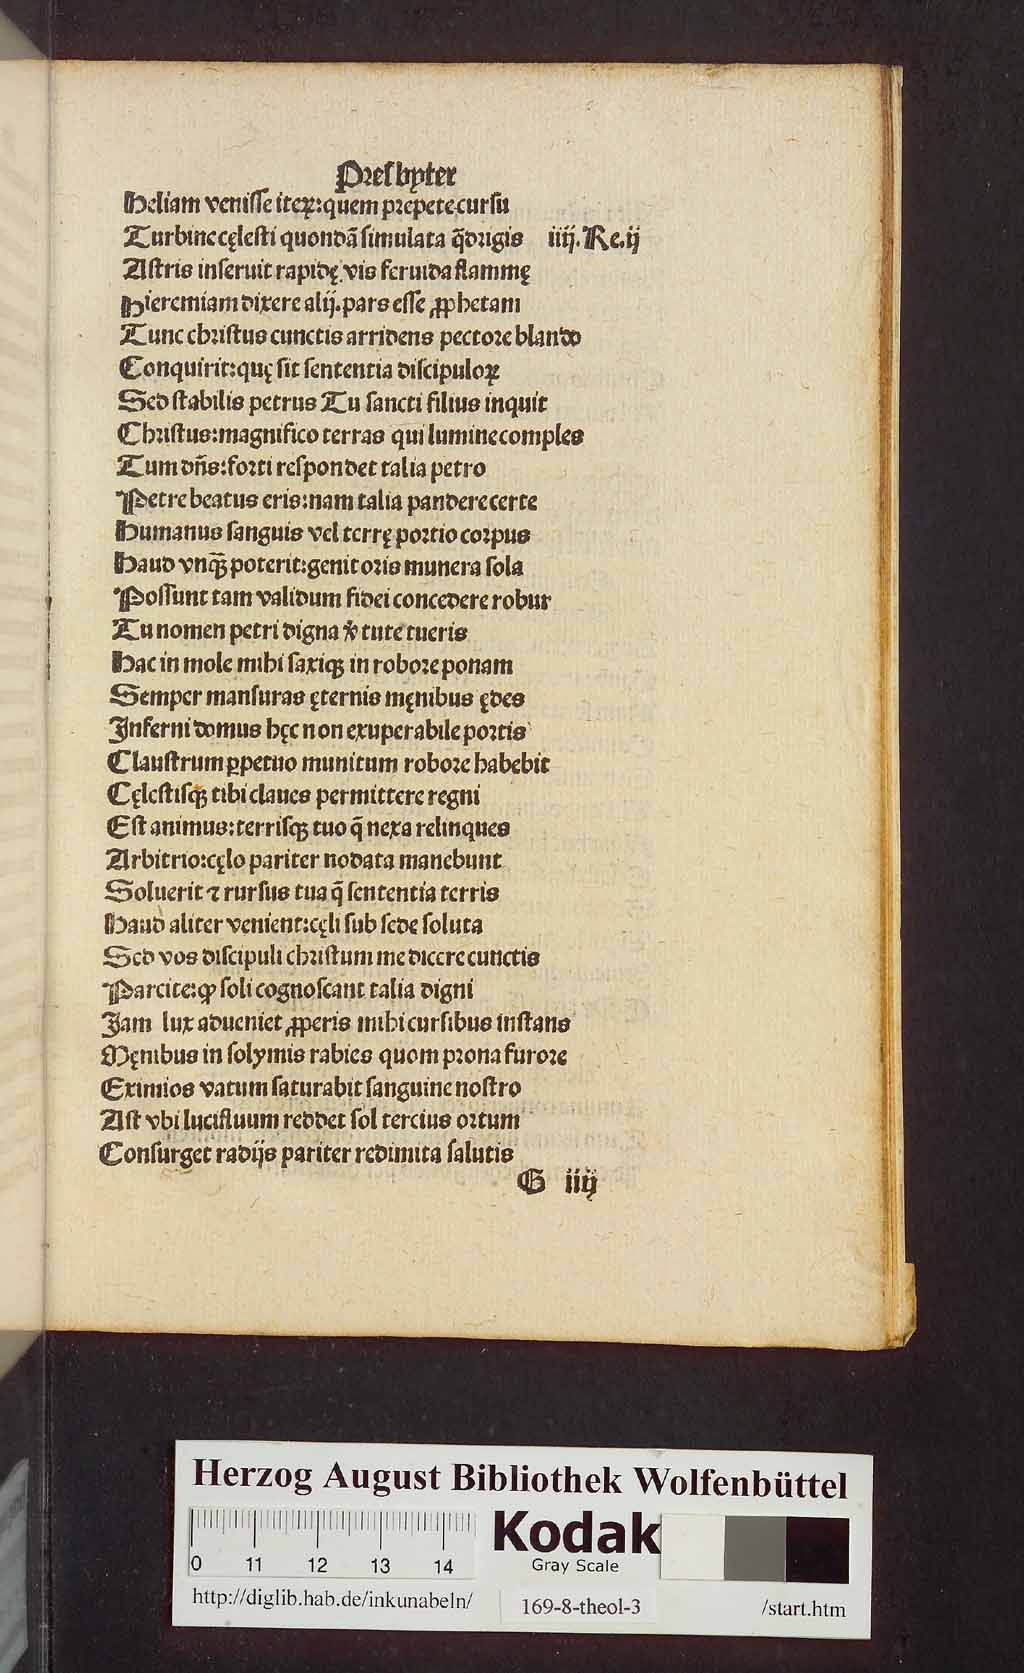 Presbyter
Heliam venisse iterꝝ:quem prepete cursu
Turbine cęlesti quondã simulata q̃drigis iiij.Re.ij
Astris inseruit rapidę vis feruida flammę
Hieremiam dixere alij.pars esse ꝓphetam
Tunc christus cunctis arridens pectore blando
Conquirit:quę sit sententia discipuloꝝ
Sed stabilis petrus Tu sancti filius inquit
Christus:magnifico terras qui lumine comples
Tum dñs:forti respondet talia petro
Petre beatus eris:nam talia pandere certe
Humanus sanguis vel terrę portio corpus
Haud vnq̃ꝫ poterit:genitoris munera sola
Possunt tam validum fidei concedere robur
Tu nomen petri digna v̾tute tueris
Hac in mole mihi saxiqꝫ in robore ponam
Semper mansuras ęternis męnibus ędes
Inferni domus hęc non exuperabile portis
Claustrum ꝑpetuo munitum robore habebit
Cęlestisqꝫ tibi claues permittere regni
Est animus:terrisqꝫ tuo q̃ nexa relinques
Arbitrio:cęlo pariter nodata manebunt
Soluerit ⁊ rursus tua q̃ sententia terris
Haud aliter venient:cęli sub sede soluta
Sed vos discipuli christum me dicere cunctis
Parcite:ꝙ soli cognoscant talia digni
Jam lux adueniet ꝓperis mihi cursibus instans
Męnibus in solymis rabies quom prona furore
Eximios vatum saturabit sanguine nostro
Ast vbi lucifluum reddet sol tercius ortum
Consurget radijs pariter redimita salutis
G iiij
Herzog August Bibliothek Wolfenbüttel
0 11 12 13 14
Kodak
Gray Scale
http://diglib.hab.de/inkunabeln/ 169-8-theol-3 /start.htm